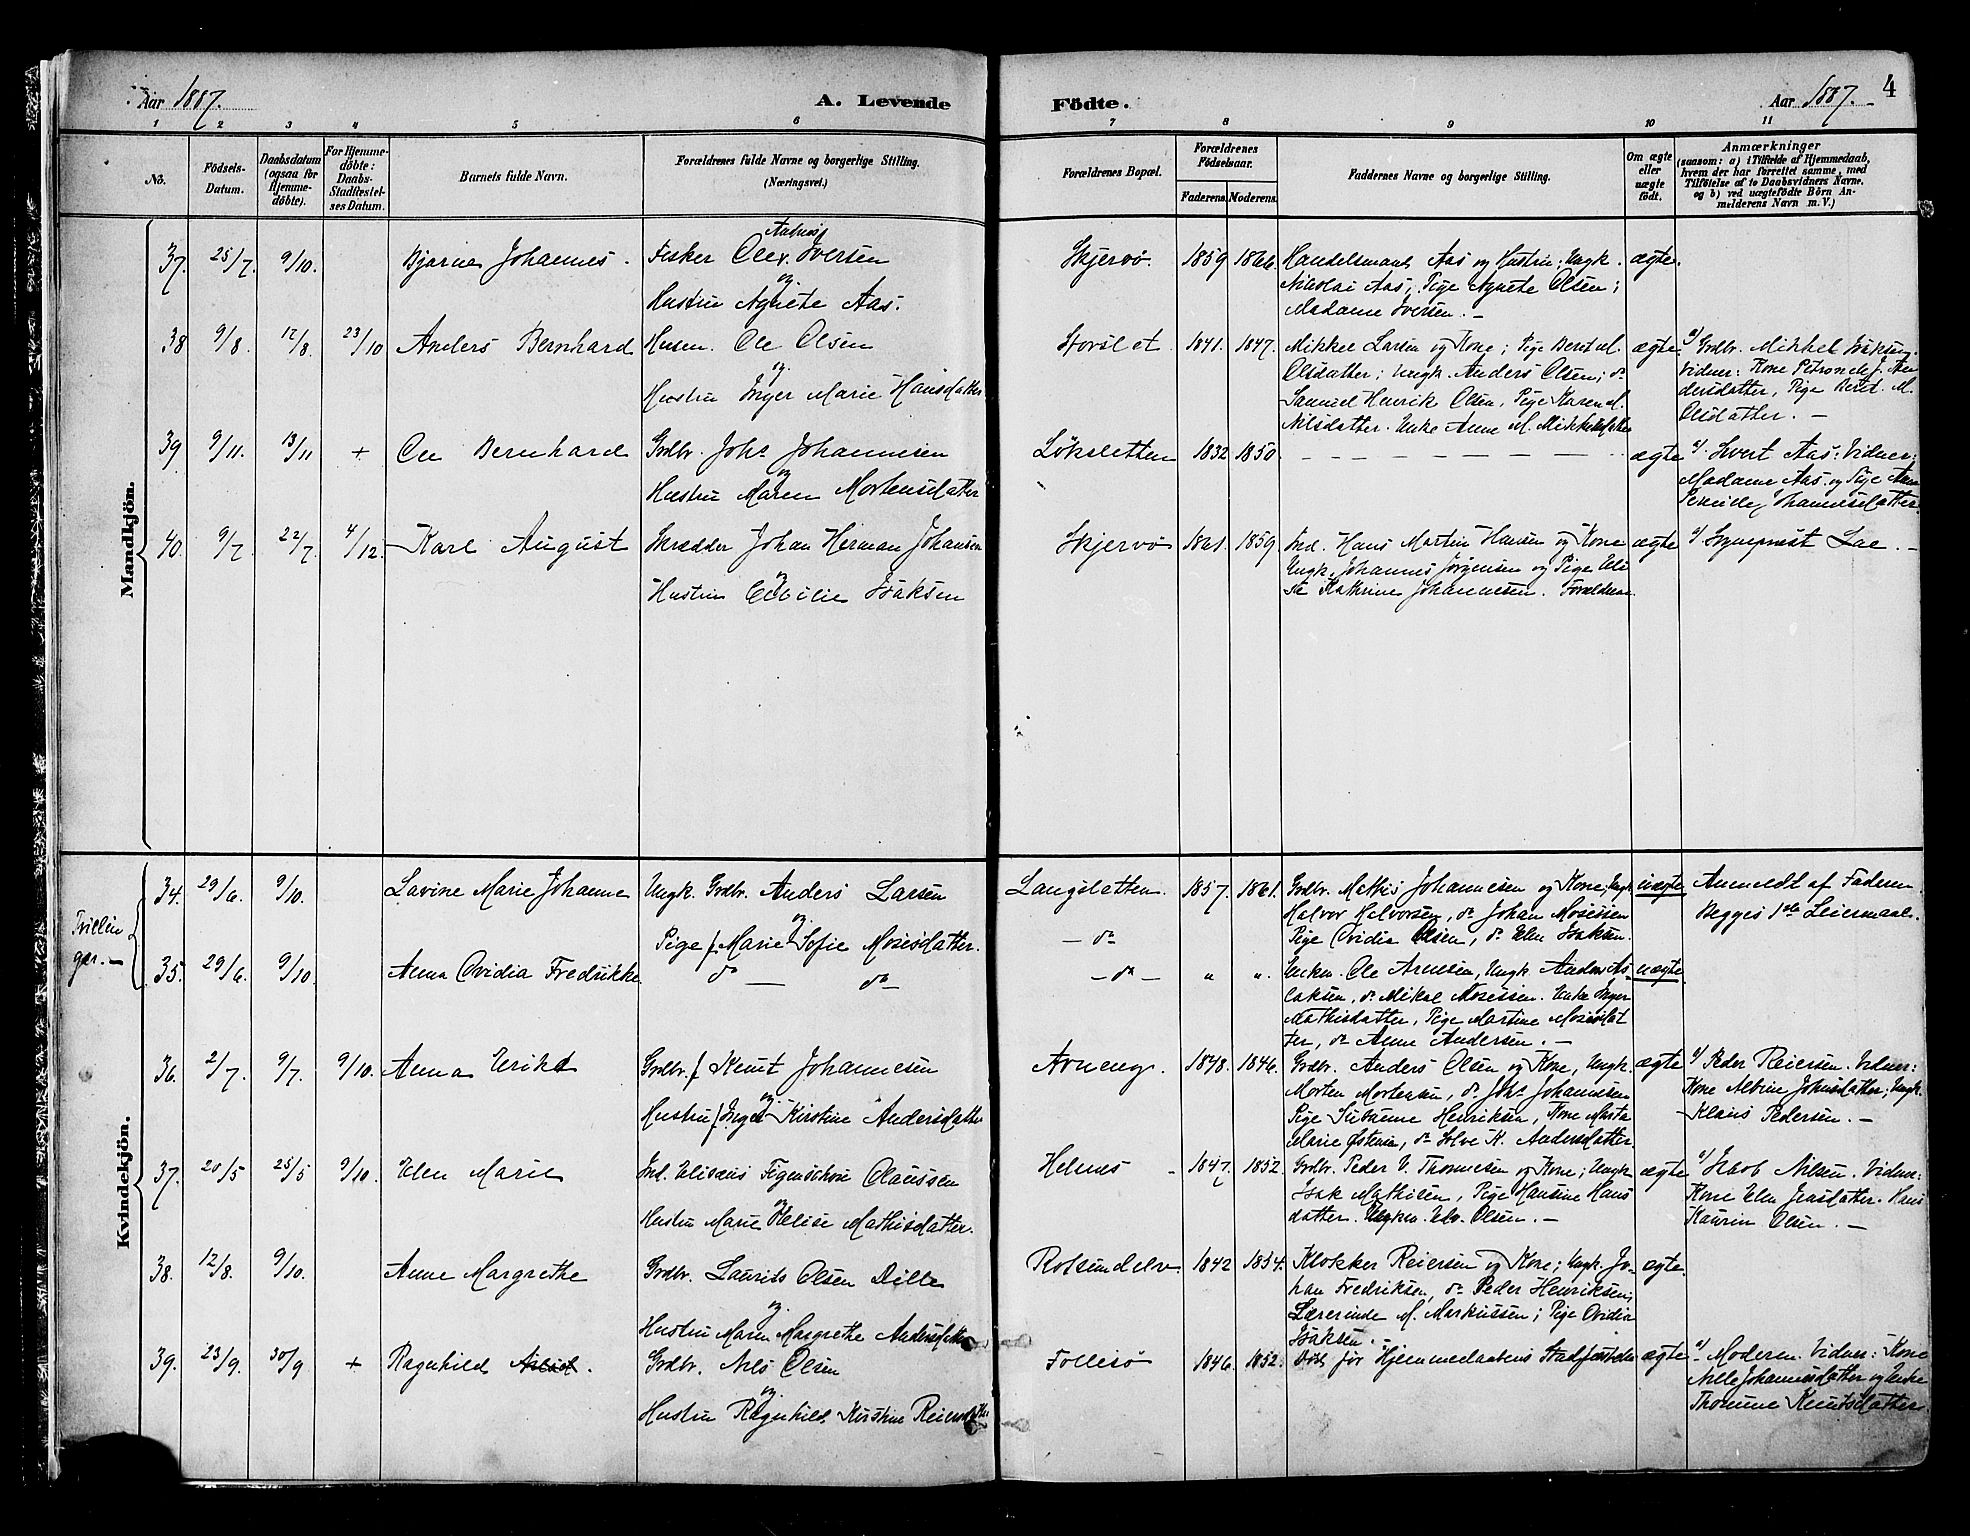 Aar 1887.
A. Levende Födte.
Aar 1887.
4
1 2 3 4 5 6 7 8 9 10 11
No.
Födsels-
Datum.
Daabsdatum
(ogsaa for
Hjemme-
döbte).
For Hjemme-
döbte:
Daabs-
Stadfæstel-
ses Datum.
Barnets fulde Navn.
Forældrenes fulde Navne og borgerlige Stilling.
(Næringsvei.)
Forældrenes Bopæl.
Forældrenes
Födselsaar.
Faderens. Moderens.
Faddernes Navne og borgerlige Stilling.
Om ægte
eller
uægte
födt.
Anmærkninger
(saasom: a) i Tilfælde af Hjemmedaab,
hvem der har forrettet samme, med
Tilföielse af to Daabsvidners Navne,
og b) ved uægtefödte Börn An-
melderens Navn m. V.)
Mandkjön.
37. 25/7. 9/10. Bjarne Johannes. Fisker Ole Iversen
og
Hustru Agnete Aas.
Skjervö. 1859. 1866. Handelsmand Aas og Hustru; Ungk.
Nikolai Aas; Pige Agnete Olsen;
Madame Iversen. —
ægte.
38 9/8. 12/8. 23/10 Anders Bernhard Husm. Ole Olsen
og
Hustru Inger Marie Hansdatter
Storslet. 1841. 1847. Mikkel Larsen og Kone; Pige Beret M.
Olsdatter; Ungk. Anders Olsen; do
Samuel Henrik Olsen, Pige Karen M.
Nilsdatter. Enke Anne M. Mikkelsdatter
ægte
a/ Grdbr. Mikkel Isaksen.
Vidner: Kone Petronele J. An
dersdatter, Pige Beret M.
Olsdatter. —
39 9/11. 13/11 + Ole Bernhard Grdbr. Johs Johannesen
og
Hustru Maren Mortensdatter
Löksletten 1832 1850. — — — — — ægte
a/ Sivert Aas. Vidner:
Madame Aas og Pige
40. 9/7. 22/7. 4/12. Karl August Skrædder Johan Herman Johansen
og
Hustru Cecilie Isaksen
Skjervö 1861. 1859. Ind. Hans Martin Hansen og Kone
Ungk. Johannes Jörgensen og Pige Eli-
se Kathrine Johannesen. Forældrene
ægte
a/ Sogneprest Lae. —
Kvindekjön.
Tvillin
ger. —
34. 29/6. 9/10. Lavine Marie Johanne Ungk. Grdbr. Anders Larsen
og
Pige Marie Sofie Mosesdatter.
Langsletten. 1857. 1861. Grdbr. Mathis Johannesen og Kone; Ungk
Halvor Halvorsen, do Johan Mosessen
Pige Ovidia Olsen, do Elen Isaksen.
uægte
Anmeldt af Faderen
Begges 1ste Leiermaal.
— do
35. 29/6. 9/10. Anna Ovidia Fredrikke do — do —
— do — " ". Enkm. Ole Arnesen, Ungk. Anders As-
laksen, do Mikal Mosessen. Enke Inger
Mathisdatter, Pige Martine Mosesdat
ter, do Anne Andersen. —
uægte
36. 2/7. 9/7. 9/10. Anna Erika Grdbr. Knut Johannesen
og
Hustru Inger Kirstine Andersdatter
Arneng. 1848. 1846. Grdbr. Anders Olsen og Kone, Ungk.
Morten Mortensen, do Johs Johannesen
Pige Henriksen, Kone Marta
Marie Östensen, do Solve K. Andersdatter
ægte
a/ Peder Reiersen. Vidner:
Kone Albine Johnsdatter; Ungk.
Klaus Pedersen. —
37. 20/5 25/5 9/10. Elen Marie Ind. Elisæus Figenschou Claussen
og
Hustru Marie Elise Mathisdatter.
Helnes 1847. 1852. Grdbr. Peder V. Thomesen og Kone; Ungk
Isak Mathisen, Pige Hansine Hans
datter. Olsen. —
ægte
a/ Jakob Nilsen. Vidner:
Kone Elen Jensdatter. Hans
Kaurin Olsen. —
38. 12/8. 9/10. Anne Margrethe Grdbr. Laurits Olsen Dille
og
Hustru Maren Margrethe Andersdatter
Rotsundelv. 1842 1854. Klokker Reiersen og Kone; Ungk. Jo-
han Fredriksen, do Peder Henriksen;
Lærerinde M. Markussen; Pige Ovidia
Isaksen. —
ægte.
39. 23/9. 30/9 + Ragnhild . Grdbr. Nils Olsen
og
Hustru Ragnhild Kirstine Reiersdatter
Follesö 1846. 1852. Död för Hjemmedaabens Stadfæstelse ægte
a/ Moderen. Vidner: Kone
Nille Johannesdatter og Enke
Thomine Knutsdatter